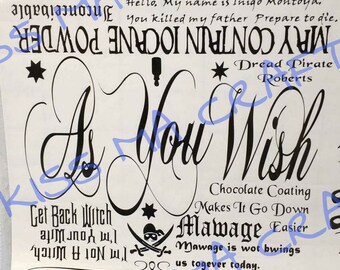 Hello, My name is Inigo Montoya,
You killed my father Prepare to die.
Inconceivable
MAY CONTAIN IOCANE POWDER
Dread Pirate
Roberts
As You Wish
Chocolate Coating
Makes It Go Down
Easier
Get Back Witch
I'm Not A Witch,
I'm Your Wife
Mawage
Mawage is wot bwings
us togever today.
KISS MA CRAFT